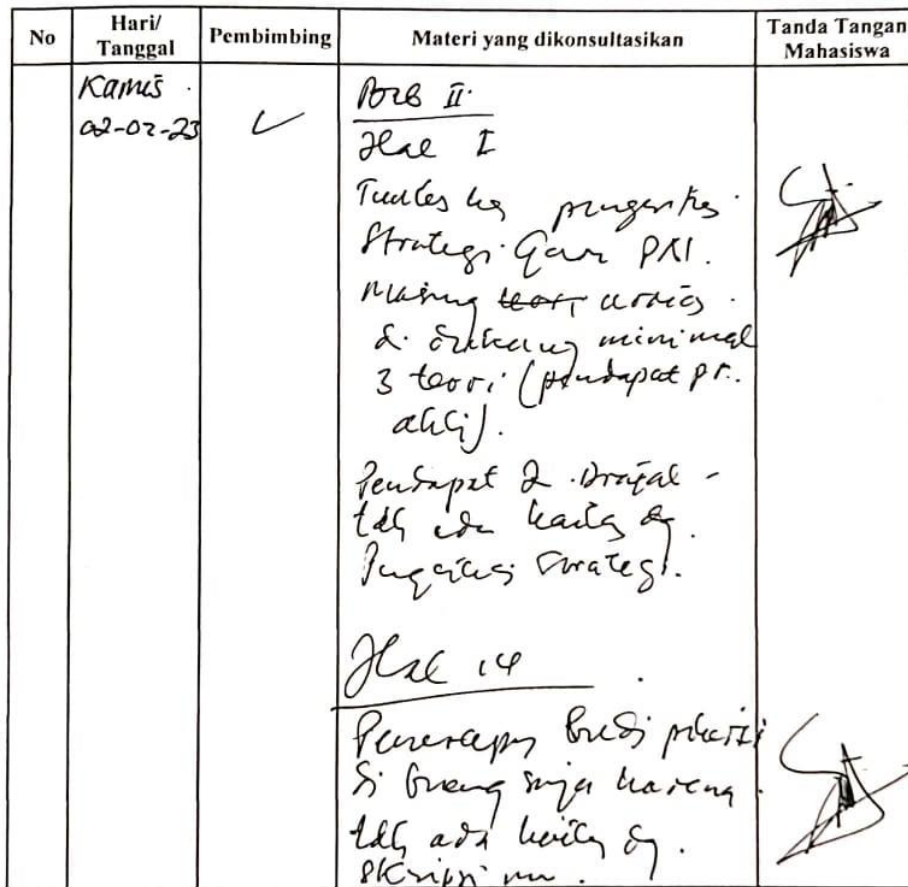 No
Hari/
Tanggal
Pembimbing
Materi yang dikonsultasikan
Tanda Tangan
Mahasiswa
Kamis
02-02-23
Bab II
Hal I
Strategi Guru PAI.
Masing
minimal
3 teori (pendapat pr.
ahli).
Pendapat Z. Drajat -
tdk ada kaitan dg.
strategi.
Hal 14
Penerapan budi pekerti
di buang saja karena
tdk ada kaitan dg.
skripsi mu.